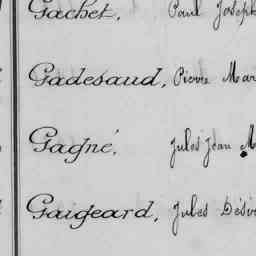 Gachet, Paul Joseph
Gadesaud, Pierre Mar
Gagné, Jules Jean M
Gaigeard, Jules Dési